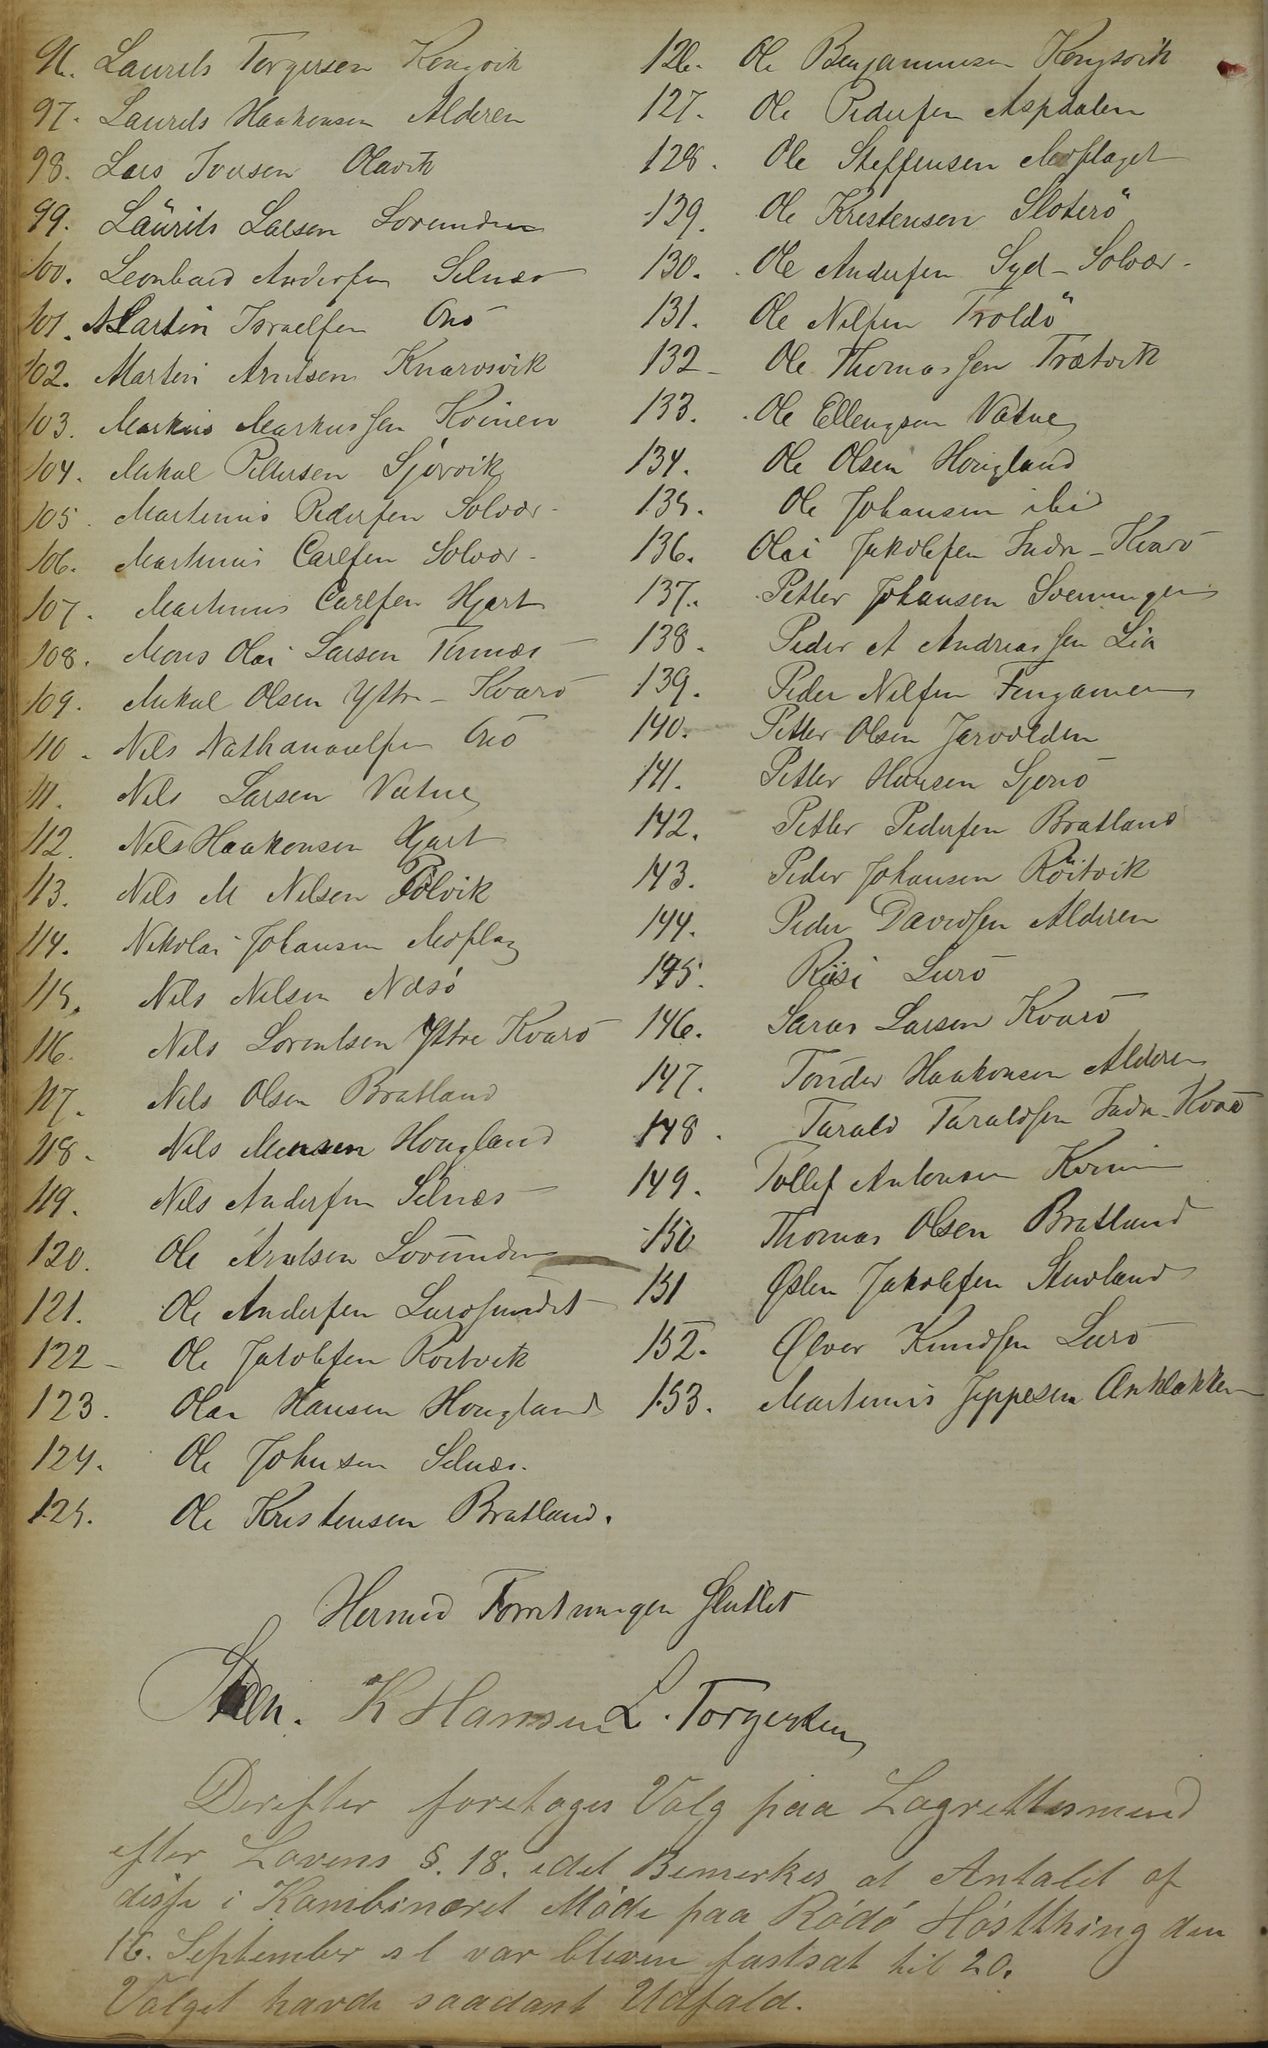 96. Laurits Torgersen Kongsvik
97. Laurits Haakonsen Alderen
98. Lars Iversen Olavik
99. Laurits Larsen Lovunden
100. Leonhard Andersen Selnæs
101. Martin Israelsen Onö
102. Martin Arntsen Kvarøvik
103. Markus Markussen Kvinen
104. Mikal Pettersen Sjørvik
105. Martinus Pedersen Solvær
106. Martinus Carlsen Solvær
107. Martinus Carlsen Hjart
108. Mons Olai Larsen Tonnæs
109. Mikal Olsen Yttre-Kvarö
110. Nils Nathanaelsen Onö
111. Nils Larsen Vatne
112. Nils Haakonsen Hjart
113. Nils M Nilsen Polvik
114. Nikolai Johansen Moflag
115. Nils Nilsen Næsö
116. Nils Lorentsen Yttre Kvarö
117. Nils Olsen Bratland
118. Nils Monsen Hougland
119. Nils Andersen Selnæs
120. Ole Arntsen Lovunden
121. Ole Andersen Lurosundet
122 - Ole Jakobsen Röitvik
123. Olai Hansen Hougland
124. Ole Johnsen Selnæs.
125. Ole Kristensen Bratland.
126. Ole Benjaminsen Kongsvik
127. Ole Pedersen Aspdalen
128. Ole Steffensen Moflaget
129. Ole Kristensen Sloterö
130. Ole Andersen Syd-Solvær.
131. Ole Nilsen Troldö
132 - Ole Thomassen Trætvik
133. Ole Ellengsen Vatne
134. Ole Olsen Hougland
135. Ole Johansen ibid
136. Olai Jakobsen Indr-Kvarö
137. Petter Johansen Sveningen
138. Peder A Andreassen Lia
139. Peder Nilsen
140. Petter Olsen
141. Petter Hansen
142. Petter Pedersen Bratland
143. Peder Johansen Röitvik
144. Peder Davidsen Alderen
145. Lurö
146. Larsen Kvarö
147. Tønder Haakonsen Alderen
148. Tarald Taraldsen Indr-Kvarö
149. Tollef Antonsen
150 Thomas Olsen Bratland
151 Jakobsen Stuvland
152. Knudsen Lurö
153. Martinus Jeppesen
Hermed Forretningen sluttet
Steen. K Hansen L. Torgersen
Derefter foretoges Valg paa Lagrettesmend
efter Lovens §. 18. idet Bemerkes at Antalet af
disse i Kombineret Möde paa Rödö Hösthing den
16. September s l var bleven fastsat til 20.
Valget havde saadant Udfald.